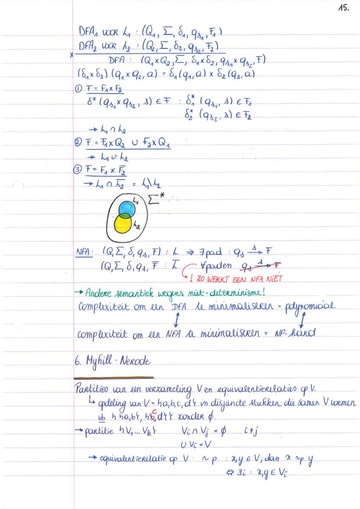 15.
DFA₁ voor L₁ : (Q₁, Σ, δ₁, q_{s₁}, F₁)
DFA₂ voor L₂ : (Q₂, Σ, δ₂, q_{s₂}, F₂)
x
DFA : (Q₁×Q₂, Σ, δ₁×δ₂, q_{s₁}×q_{s₂}, F)
(δ₁×δ₂) (q₁×q₂, a) = δ₁(q₁, a) × δ₂(q₂, a)
① F = F₁×F₂
δ*(q_{s₁}×q_{s₂}, s) ∈ F : δ₁*(q_{s₁}, s) ∈ F₁
δ₂*(q_{s₂}, s) ∈ F₂
→ L₁ ∩ L₂
② F = F₁×Q₂ ∪ F₂×Q₁
→ L₁ ∪ L₂
③ F = F₁ × F̅₂
→ L₁ ∩ L̅₂ = L₁\L₂
L₁ Σ*
L₂
NFA : (Q, Σ, δ, q_s, F) : L ⇒ ∃ pad : q_s →^s F
(Q, Σ, δ, q_s, F̅ : L̅ ∀ paden q_s →^s F
! ZO WERKT EEN NFA NIET
→ Andere semantiek wegens niet-determinisme!
Complexiteit om een DFA te minimaliseren = polynomiaal
complexiteit om een NFA te minimaliseren = NP-hard
6. Myhill-Nerode
Partities van een verzameling V en equivalentierelaties op V.
↳ opdeling van V = {a,b,c,d} in disjuncte stukken die samen V vormen
vb {{a,b}, {c,d}} zonder ∅
→ partitie {V₁...V_k} V_i ∩ V_j = ∅ i≠j
∪ V_i = V
→ equivalentierelatie op V : ~p : x,y ∈ V, dan x ~p y
⇔ ∃i : x,y ∈ V_i